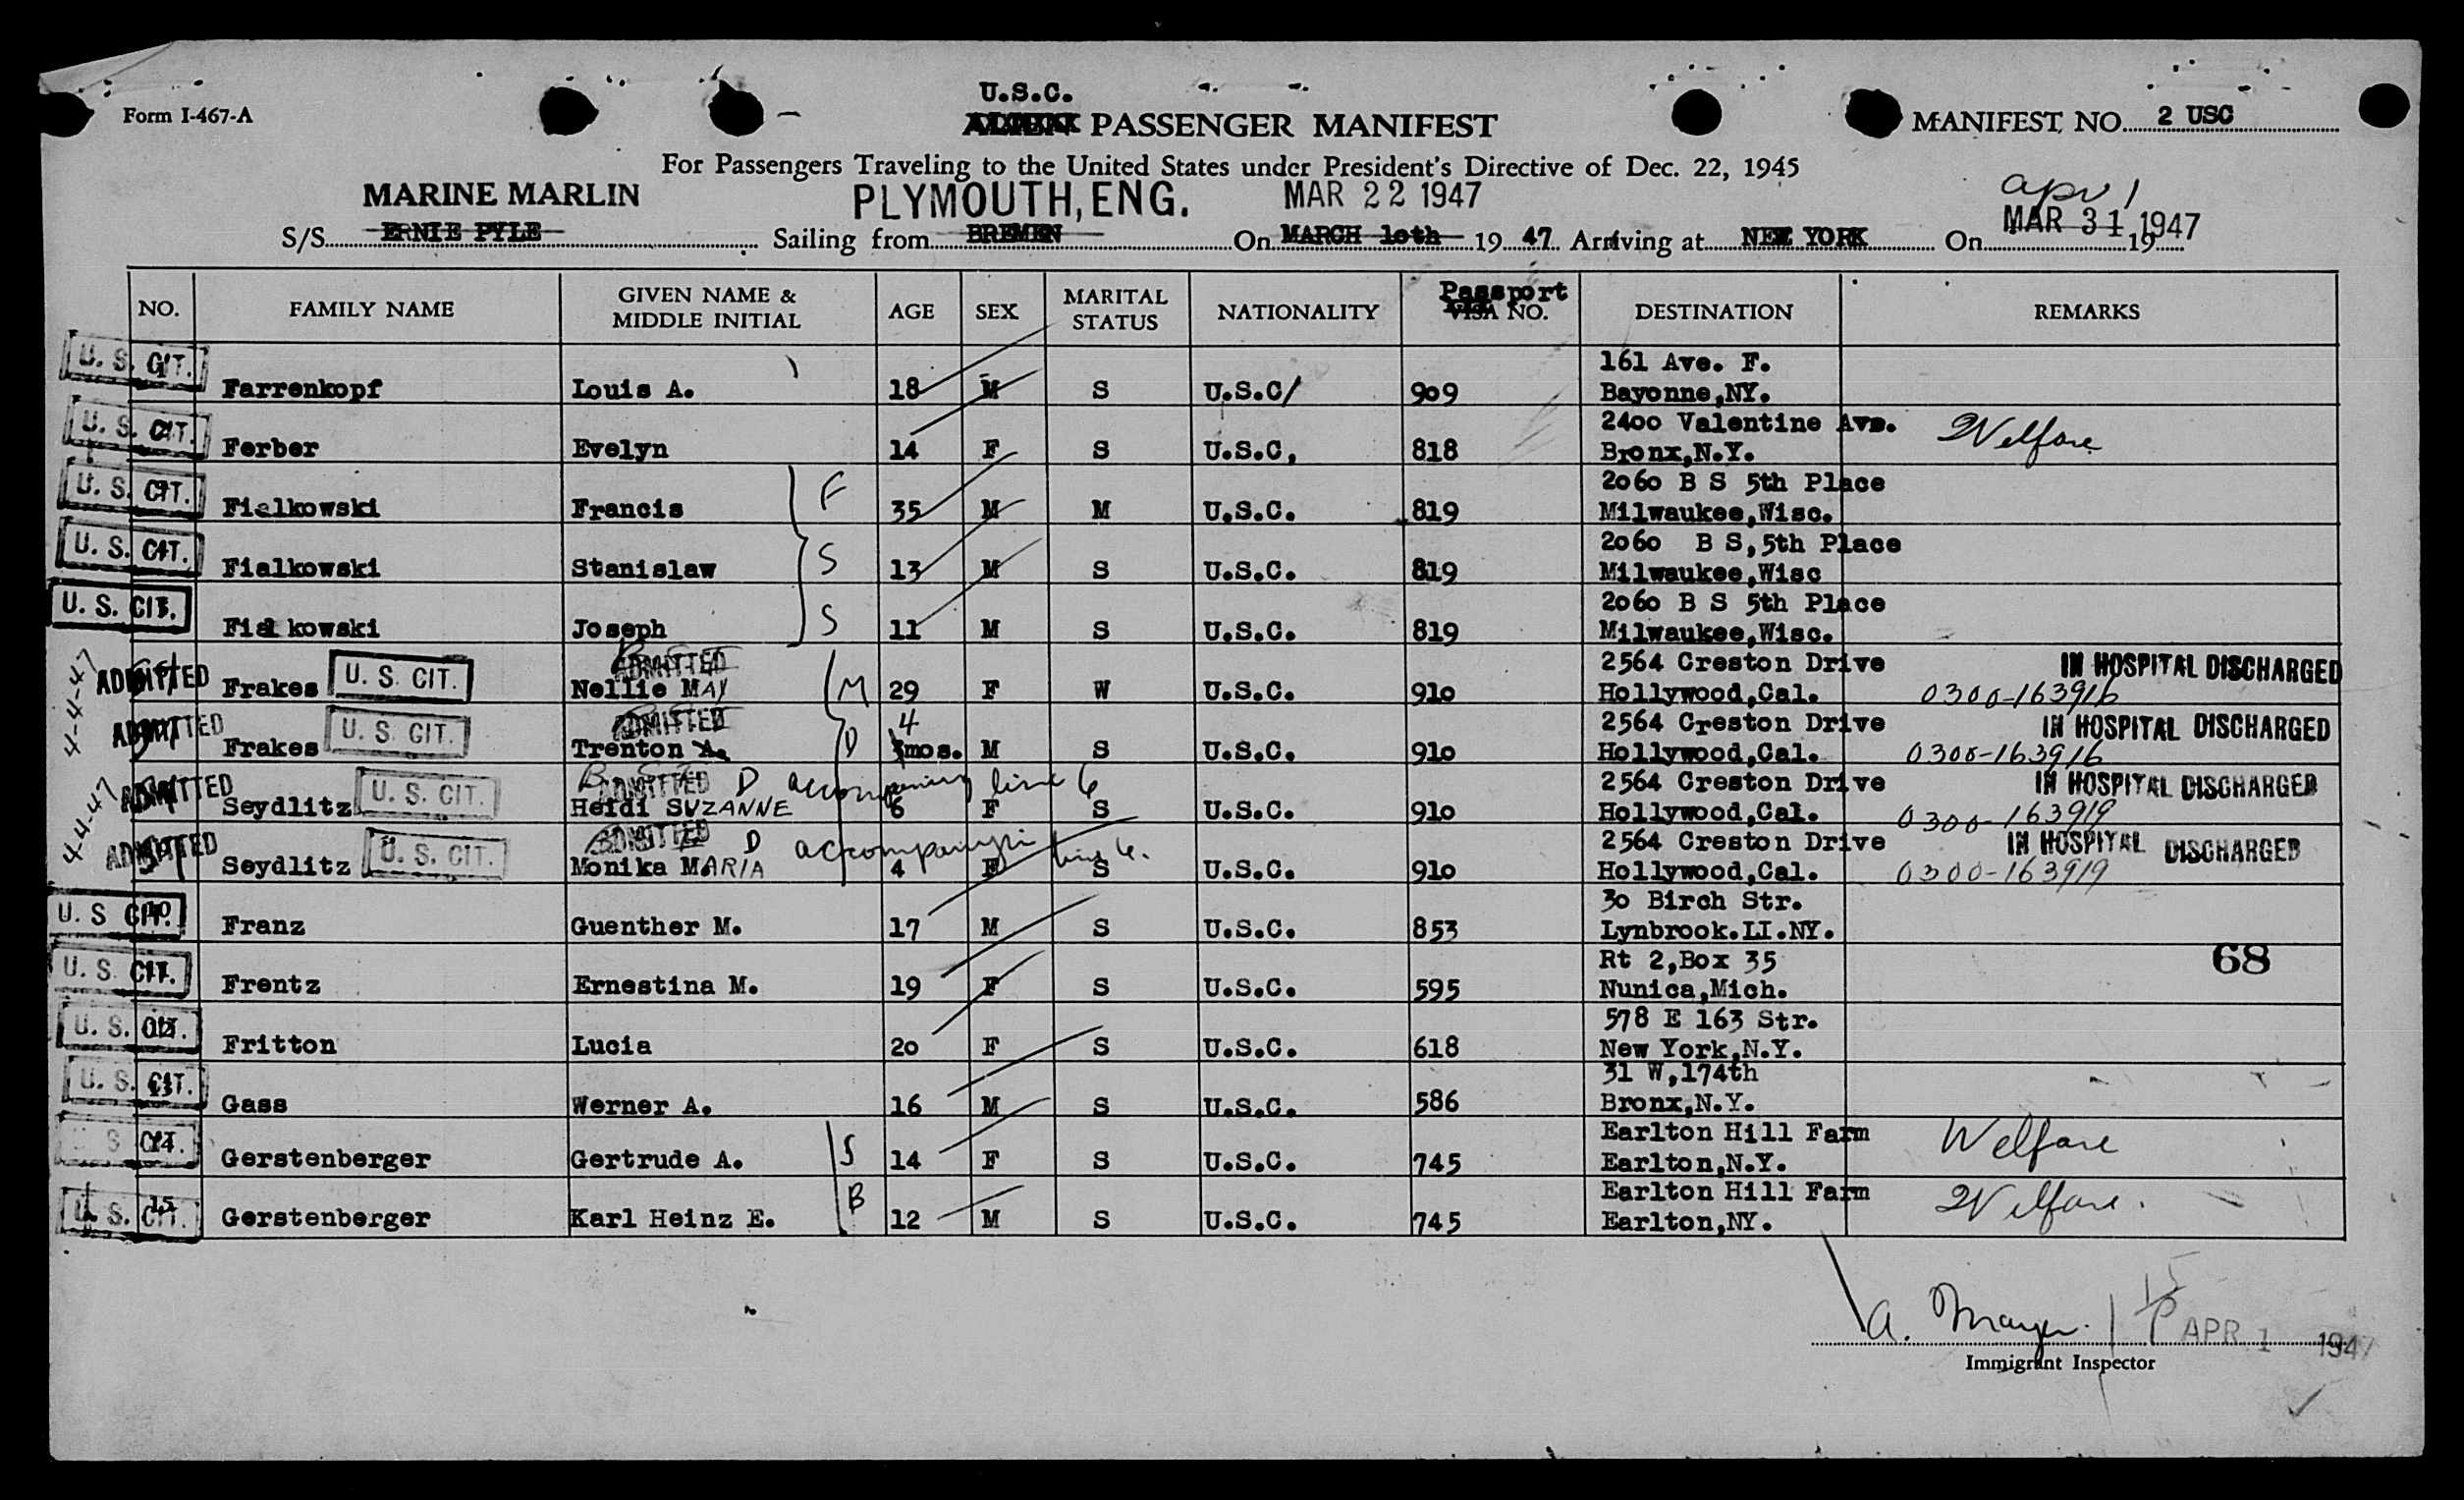 U.S.C.
Form I-467-A
PASSENGER MANIFEST
MANIFEST NO. 2 USC
For Passengers Traveling to the United States under President's Directive of Dec. 22, 1945
MARINE MARLIN PLYMOUTH, ENG. MAR 22 1947 apr 1
S/S ERNIE PYLE Sailing from BREMEN On MARCH 10th 19 47 Arriving at NEW YORK On MAR 31 1947 19
NO. FAMILY NAME GIVEN NAME & MIDDLE INITIAL AGE SEX MARITAL STATUS NATIONALITY Passport VISA NO. DESTINATION REMARKS
161 Ave. F.
U. S. CIT. Farrenkopf Louis A. 18 M S U.S.C/ 909 Bayonne,NY.
2400 Valentine Ave.
U. S. CIT. Ferber Evelyn 14 F S U.S.C, 818 Bronx,N.Y. Welfare
2060 B S 5th Place
U. S. CIT. Fialkowski Francis F 35 M M U.S.C. 819 Milwaukee,Wisc.
2060 B S,5th Place
U. S. CIT. Fialkowski Stanislaw S 13 M S U.S.C. 819 Milwaukee,Wisc
2060 B S 5th Place
U. S. CIT. Fial kowski Joseph S 11 M S U.S.C. 819 Milwaukee,Wisc.
4-4-47
ADMITTED 2564 Creston Drive IN HOSPITAL DISCHARGED
ADMITTED Frakes U. S. CIT. Nellie MAY M 29 F W U.S.C. 910 Hollywood,Cal. 0300-163916
ADMITTED 4 2564 Creston Drive IN HOSPITAL DISCHARGED
ADMITTED Frakes U. S. CIT. Trenton A. D mos. M S U.S.C. 910 Hollywood,Cal. 0300-163916
4-4-47
ADMITTED D accompanying line 6 2564 Creston Drive IN HOSPITAL DISCHARGED
ADMITTED Seydlitz U. S. CIT. Heidi SUZANNE 6 F S U.S.C. 910 Hollywood,Cal. 0300-163919
ADMITTED D accompanyin line 6. 2564 Creston Drive IN HOSPITAL DISCHARGED
ADMITTED Seydlitz U. S. CIT. Monika MARIA 4 F S U.S.C. 910 Hollywood,Cal. 0300-163919
30 Birch Str.
U. S CIT. Franz Guenther M. 17 M S U.S.C. 853 Lynbrook.LI.NY.
Rt 2,Box 35 68
U. S. CIT. Frentz Ernestina M. 19 F S U.S.C. 595 Nunica,Mich.
578 E 163 Str.
U. S. CIT. Fritton Lucia 20 F S U.S.C. 618 New York,N.Y.
31 W,174th
U. S. CIT. Gass Werner A. 16 M S U.S.C. 586 Bronx,N.Y.
Earlton Hill Farm
U. S. CIT. Gerstenberger Gertrude A. S 14 F S U.S.C. 745 Earlton,N.Y. Welfare
Earlton Hill Farm
U. S. CIT. 15 Gerstenberger Karl Heinz E. B 12 M S U.S.C. 745 Earlton,NY. Welfare.
A. Mayer. APR 1 1947
Immigrant Inspector